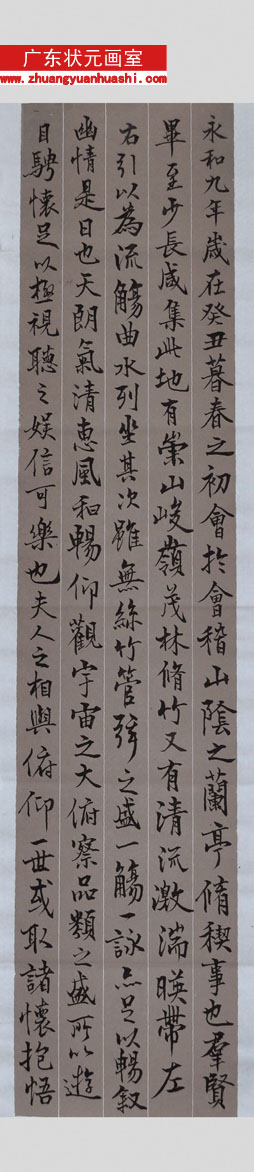 广东状元画室
www.zhuangyuanhuashi.com
永和九年歲在癸丑暮春之初會於會稽山陰之蘭亭脩稧事也羣賢
畢至少長咸集此地有崇山峻嶺茂林脩竹又有清流激湍暎帶左
右引以為流觴曲水列坐其次雖無絲竹管弦之盛一觴一詠亦足以暢敘
幽情是日也天朗氣清惠風和暢仰觀宇宙之大俯察品類之盛所以遊
目騁懷足以極視聽之娛信可樂也夫人之相與俯仰一世或取諸懷抱悟